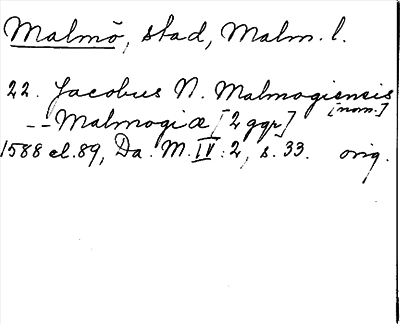 Malmö, stad, Malm. l.
22. Jacobus N. Malmogiensis
[nom.]
-- Malmogiæ [2 ggr]
1588 el. 89, Da. M. IV: 2, s. 33. orig.